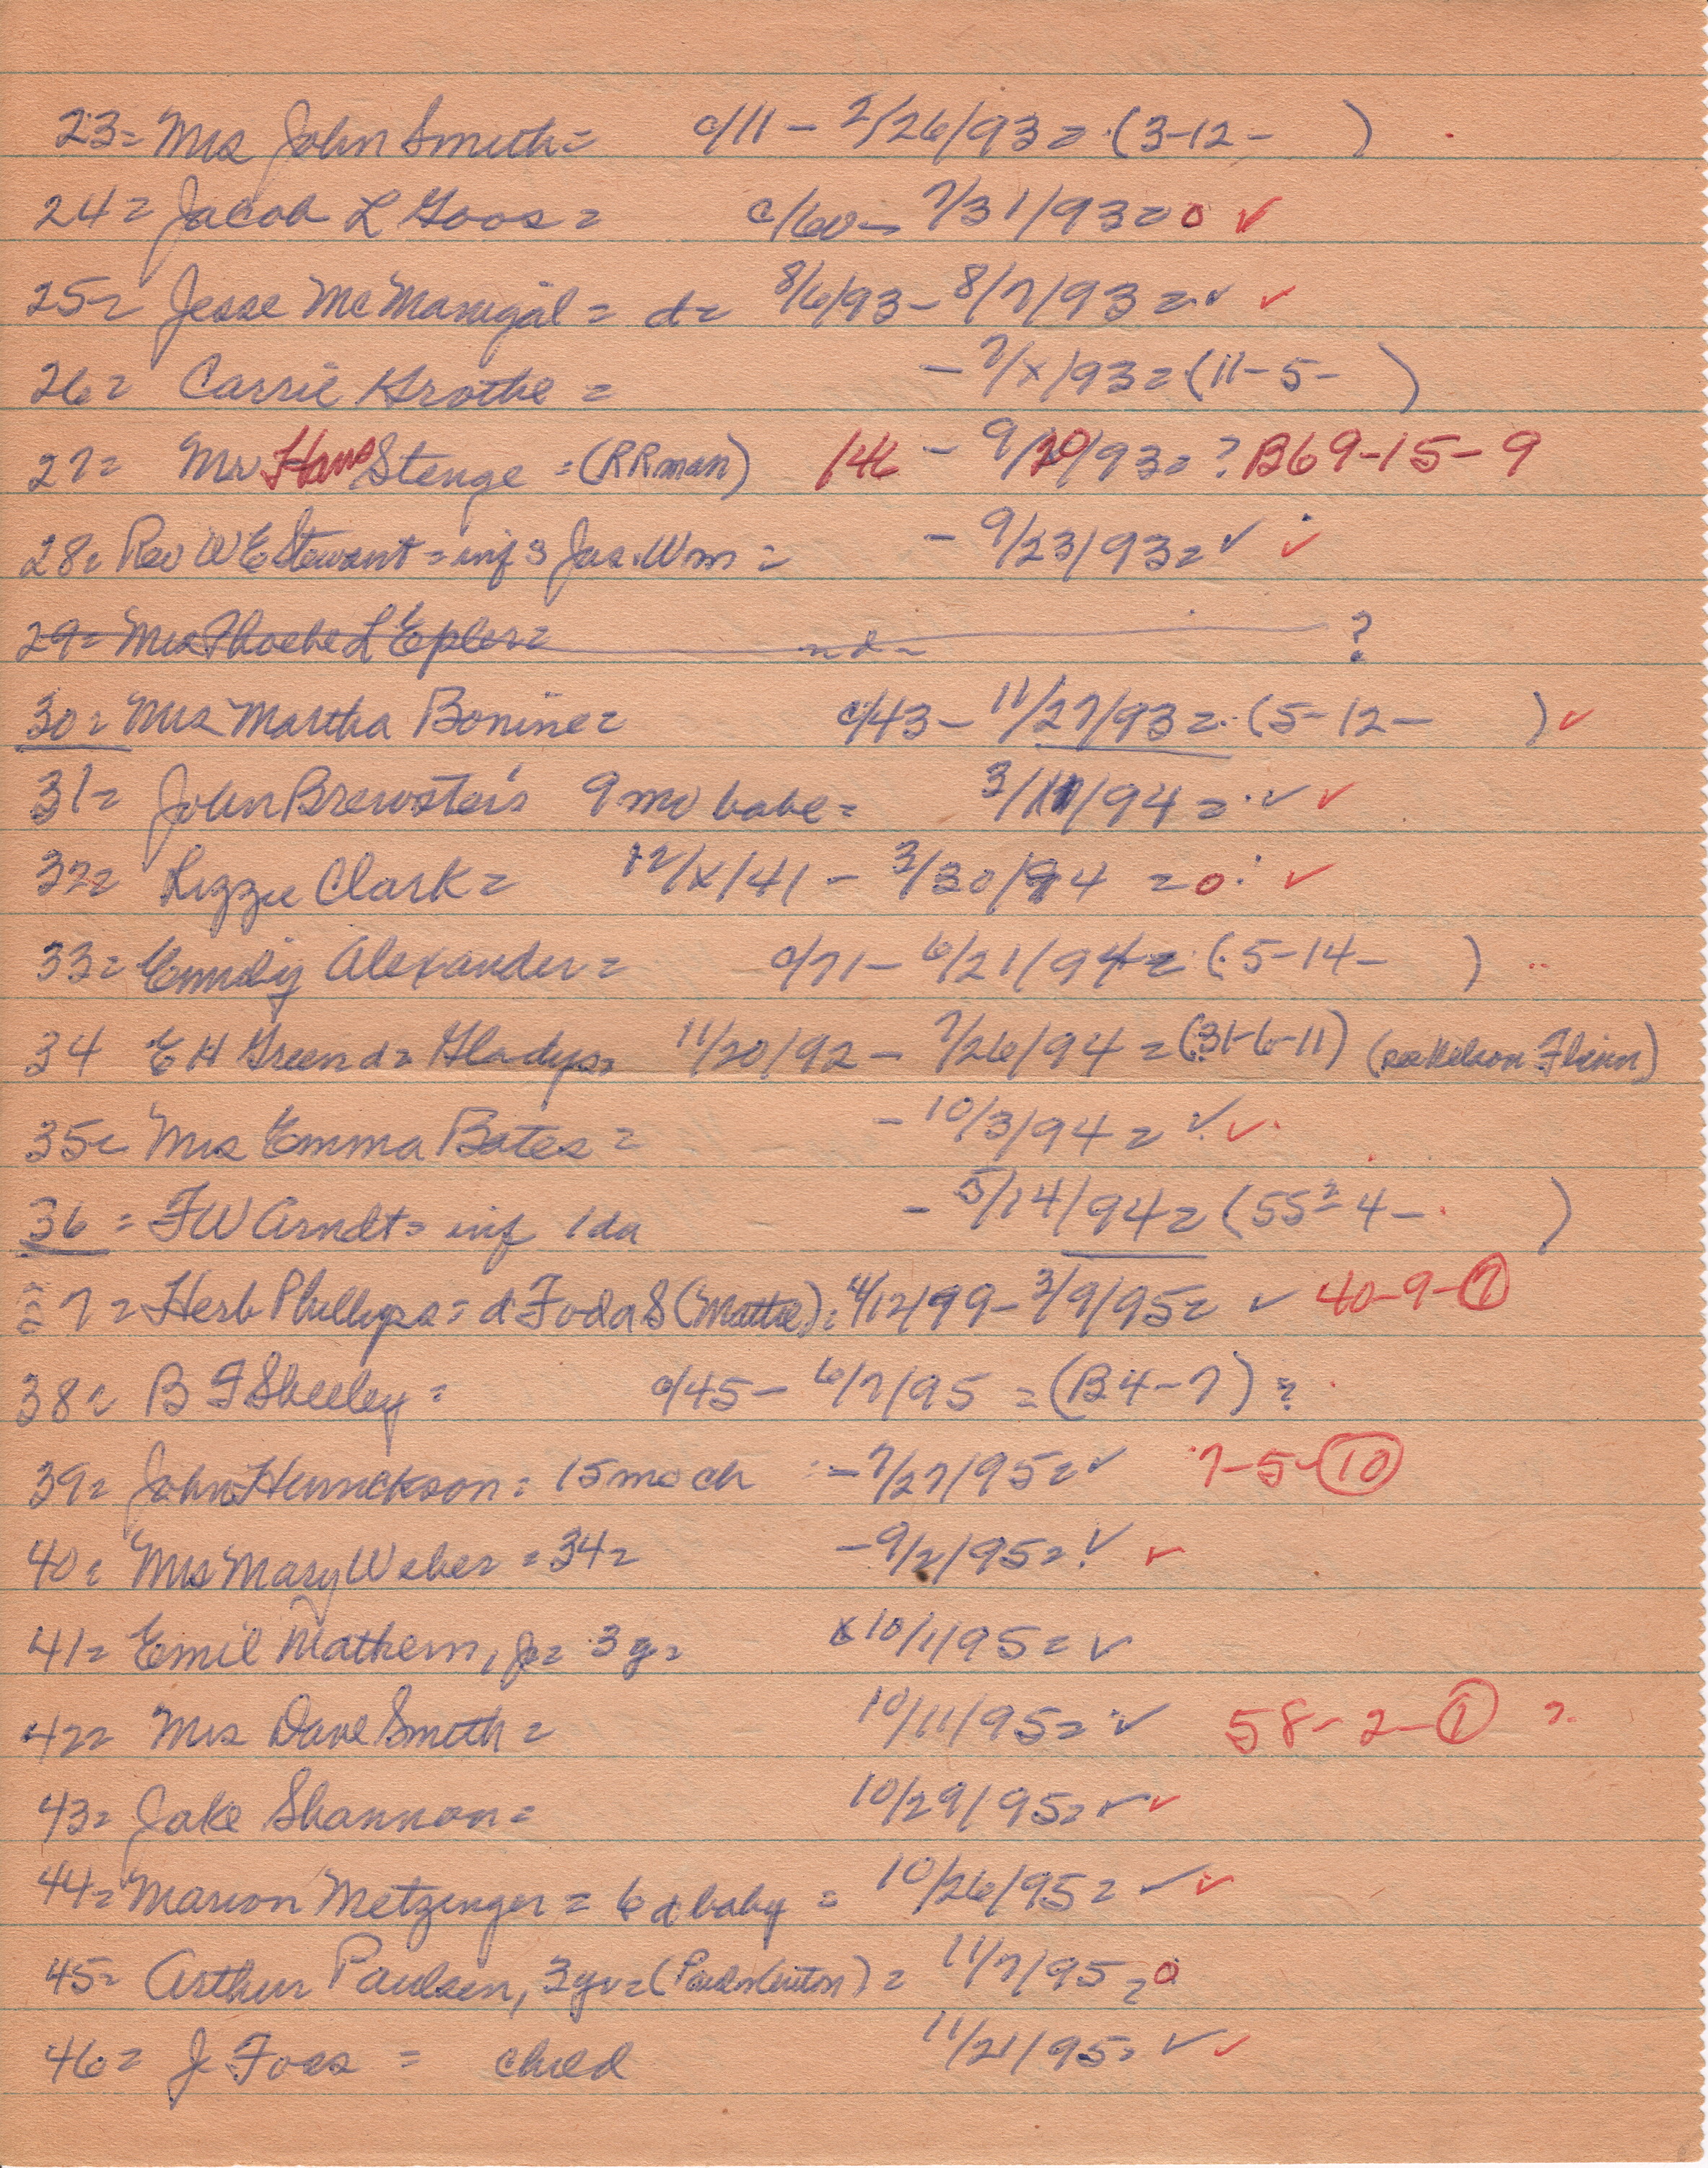 23= Mrs John Smith= c/11 - 2/26/93= (3-12- )
24= Jacob L Goos= c/60- 7/31/93=0 ✓
25= Jesse McManigal= d= 8/6/93- 8/7/93=✓ ✓
26= Carrie Grothe= - 7/x/93=(11-5- )
27= Mr Hans Stenge =(RRman) - 9/20/93=? B69-15-9
28= Rev WE Stewart= inf s Jas. Wm= - 9/23/93=✓ ✓
29= Mrs Phoebe L Epler= =d- ?
30= Mrs Martha Bonine= c/43- 11/27/93= (5-12- )✓
31= John Brewster's 9 mo babe= 3/11/94=✓ ✓
32= Lizzie Clark= 12/x/41 - 3/30/94 =0 ✓
33= Emily Alexander= c/71- 6/21/94= (5-14- )
34 E H Green d= Gladys= 11/20/92- 7/26/94=(31-6-11) (see Nelson Flinn)
35= Mrs Emma Bates= - 10/3/94=✓ ✓
36 = FW Arndt= inf 1da - 5/14/94=(55=4- )
37= Herb Phillips= d (Mattie)= 4/12/99- 3/9/95= ✓ 40-9-7
38= B F Sheeley= c/45- 6/7/95 =(B4-7) ?
39= John Hinrickson= 15 mo ch -7/27/95=✓ 7-5-10
40= Mrs Mary Weber =34= -9/2/95=✓ ✓
41= Emil Mathern, Jr= 3y= 10/1/95=✓
42= Mrs Dave Smith= 10/11/95=✓ 58-2-1 ?
43= Jake Shannon= 10/29/95=✓✓
44= Marion Metzinger= 6 d baby = 10/26/95=✓✓
45= Arthur Paulsen, 3yr= = 11/7/95=0
46= J Foes = child 11/21/95= ✓✓